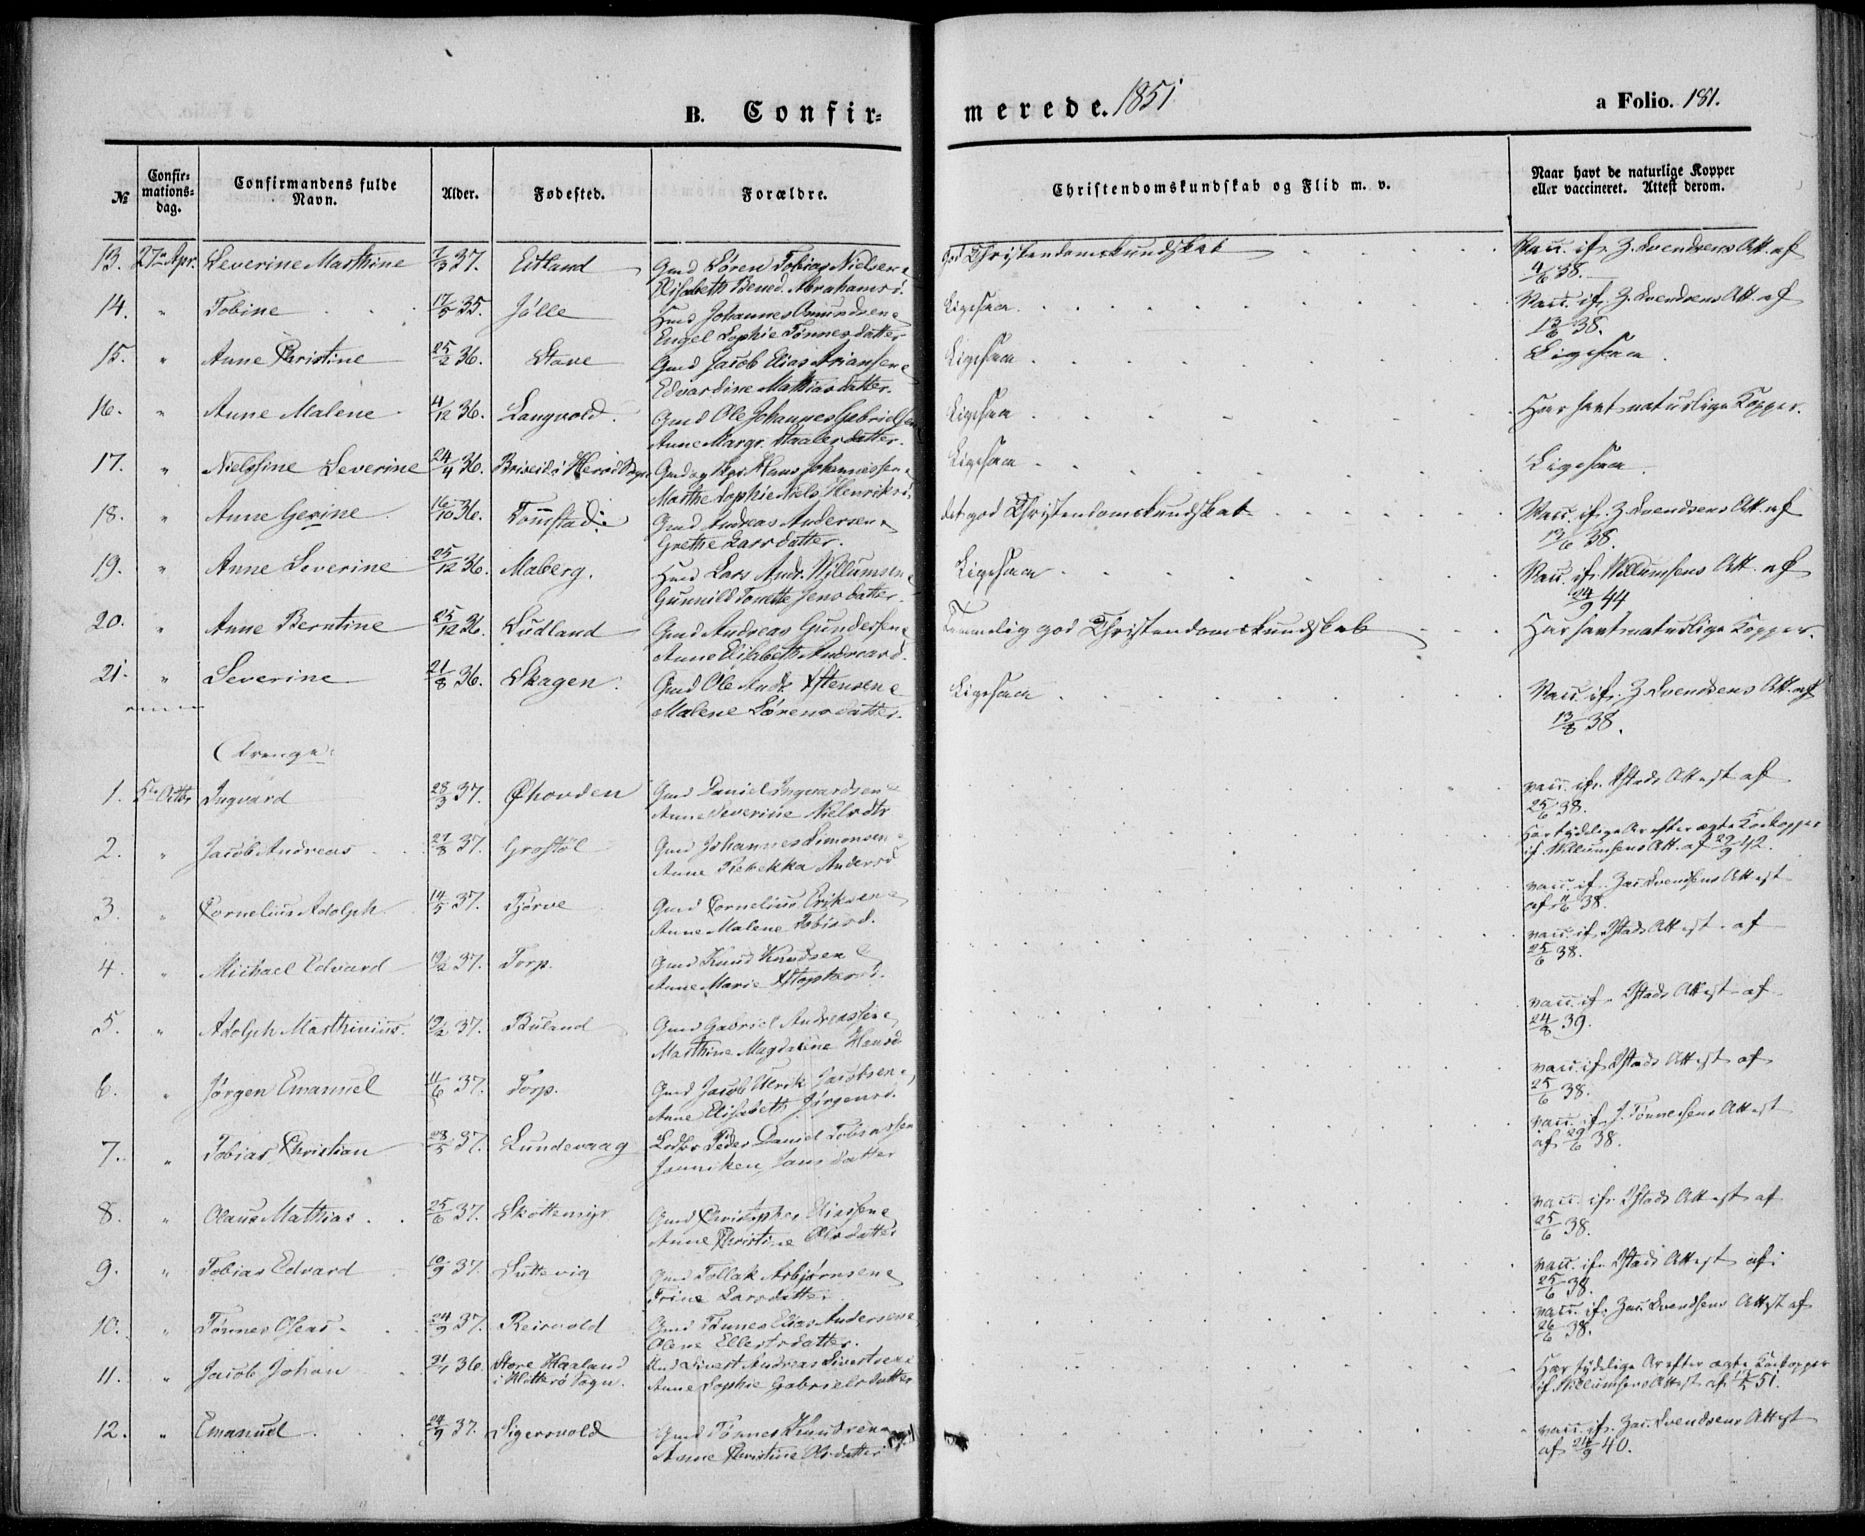 B. Confir= merede. 1851 a Folio. 181.
№ Confir=mations=dag. Confirmandens fulde Navn. Alder. Fødested. Forældre. Christendomskundskab og Flid m. v. Naar havt de naturlige Kopper eller vaccineret. Attest derom.
13. 27de Apr. Severine Marthine 7/3 37. Eitland Gmd Søren Tobias Nielsen & god Christendomskundskab Vacc. if. Z. Svendsens Att. af
Elisabeth Bened. Abrahamsd. 4/6 38.
14. " Tobine 17/5 35. Jølle Hmd Johannes Omundsen & Ligesaa Vacc. if. Z. Svendsens Att. af
Engel Sophie Tønnesdatter 13/6 38.
15. " Anne Christine 25/2 36. Stave Gmd Jacob Elias Ariansen & Ligesaa Ligesaa.
Edvardine Mathiasdatter.
16. " Anne Malene 4/12 36. Langvold. Gmd Ole Johannes Gabrielsen Ligesaa Har havt naturlige Kopper.
Anne Margr. Staalesdatter.
17. " Nielsine Severine 24/9 36. Briseid i Herred Sogn Gmd og Hans Johannessen & Ligesaa Ligesaa.
Marthe Sophie Niels Henriksd.
18. " Anne Gerine 16/10 36. Tomstad Gmd Andreas Andersen & det. god Christendomskundskab Vacc. if. Z. Svendsens Att. af
Grethe Larsdatter. 13/6 38.
19. " Anne Severine 25/12 36. Maberg. Hmd Lars Andr. Willumsen & Ligesaa Vacc. if. Willumsens Att. af
Gunnild Tonette Jensdatter. 24/9 44
20. " Anne Berntine 25/12 36. Sudland Gmd Andreas Gundersen & Temmelig god Christendomskundskab Har havt naturlige Kopper.
Anne Elisabeth Andreasd.
21. " Severine 21/8 36. Skagen. Gmd Ole Andr. Estensen & Ligesaa Vacc. if. Z. Svendsens Att. af
Malene Sørensdatter. 13/8 38.
Drenge:
1. 5te Octbr Ingvard 28/3 37. Øhovden Gmd Daniel Ingvardsen & vacc. if. Ystads Attest af
Anne Severine Nielsdtr 25/6 38.
2. " Jacob Andreas 27/8 37. Grostøl Gmd Johannes Simonsen & Har tydelige Ar efter ægte Kokopper
Anne Rebekka Andersd if. Willumsens Att. af 29/9 42.
3. " Cornelius Adolph 14/5 37. Tjørve Gmd Cornelius Eriksen & vacc. if. Zac. Svendsens Attest
Anne Malene Tobiasd. af 11/6 38.
4. " Michael Edvard 19/2 37. Torp. Gmd Knud Knudsen & vacc. if. Ystads Attest af
Anne Marie 25/6 38.
5. " Adolph Marthinius. 19/2 37. Buland Gmd Gabriel Andreassen & vacc. if. Ystads Attest af
Marthine Magdalene Hansd 24/8 39.
6. " Jørgen Emanuel 11/6 37. Torp. Gmd Jacob Ulrik Jacobsen & vacc. if. Ystads Attest af
Anne Elisabeth Jørgensd. 25/6 38.
7. " Tobias Christian 28/5 37. Lundevaag Peder Daniel Tobiassen vacc. if. J. Tønnesens Attest
Janniken Jansdatter af 29/6 38.
8. " Olaus Mathias 25/6 37. Skottemyr Gmd Christopher Eliassen & vacc. if. Ystads Attest af
Anne Christine Olsdatter 25/6 38.
9. " Tobias Edvard 10/9 37. Luttevig Gmd Tollak Asbjørnsen & vacc. if. Ystads Attest af
Trine Larsdatter 25/6 38.
10. " Tønnes Oseas 24/9 37. Reirvold Gmd Tønnes Elias Andersen & vacc. if. Zac. Svendsens Attest af
Olene Ellertsdatter. 26/6 38.
11. " Jacob Johan 31/7 36. Store Haaland Gmd Sivert Andreas Sivertsen & Har tydelige Ar efter ægte Kokopper
i Hitterø Sogn. Anne Sophie Gabrielsdatter if. Willumsens Attest af 51.
12. " Emanuel 24/9 37. Sigersvold Gmd Tønnes Knudsen & vacc. if. Zac. Svendsens Attest
Anne Christine Olsdatter af 24/9 40.